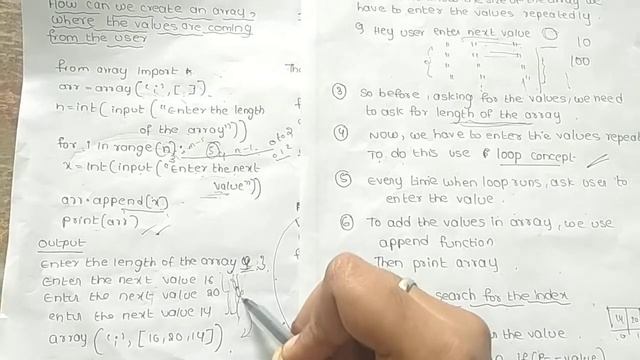 How can we create an array,
where the values are coming
from the user
from array import *
arr = array('i',[ ])
n=int(input("Enter the length
of the array"))
for i in range(n):
x=int(input("Enter the next
value"))
arr.append(x)
print(arr)
Output
Enter the length of the array 3
Enter the next value 16
Enter the next value 20
enter the next value 14
array('i',[16,20,14])
have to enter the values repeatedly.
Hey user enter next value
10
100
③ So before, asking for the values, we need
to ask for length of the array.
④ Now, we have to enter the values repeat
To do this use loop concept
⑤ Every time when loop runs, ask user to
enter the value.
⑥ To add the values in array, we use
append function
Then print array.
search for the Index
14 20
the value.